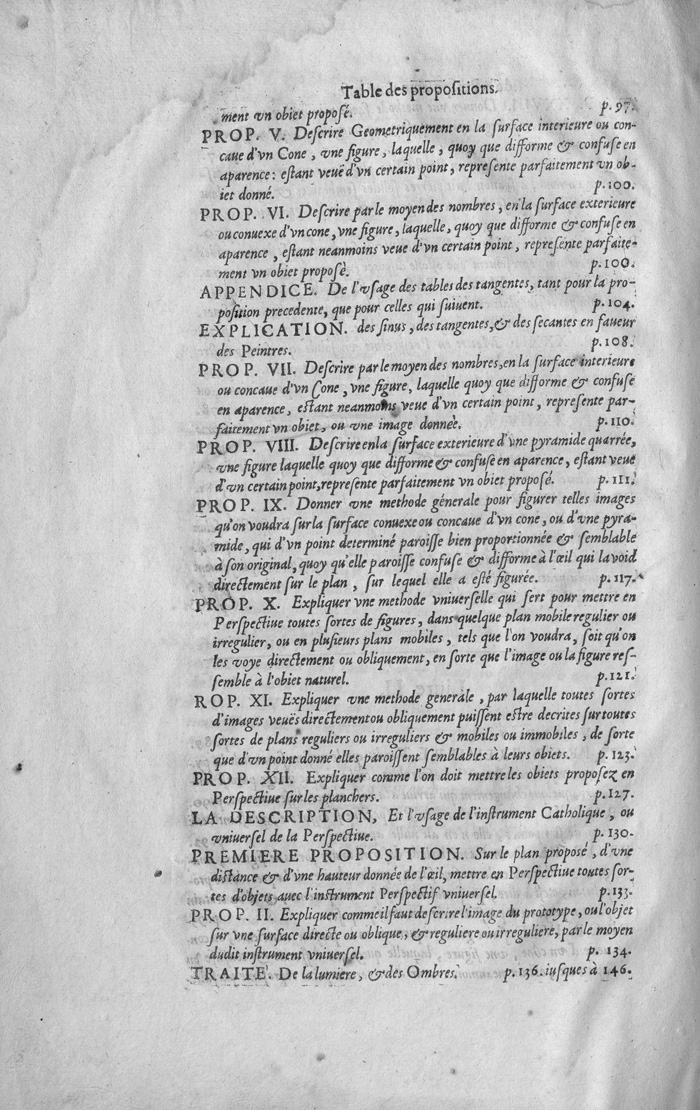 Table des propositions.
ment vn obiet proposé. p. 97.
PROP. V. Descrire Geometriquement en la surface interieure ou con-
caue d'vn Cone, vne figure, laquelle, quoy que difforme & confuse en
aparence: estant veuë d'vn certain point, represente parfaitement vn ob-
iet donné. p. 100.
PROP. VI. Descrire par le moyen des nombres, en la surface exterieure
ou conuexe d'vn cone, vne figure, laquelle, quoy que difforme & confuse en
aparence, estant neanmoins veue d'vn certain point, represente parfaite-
ment vn obiet proposé. p. 100.
APPENDICE. De l'vsage des tables des tangentes, tant pour la pro-
position precedente, que pour celles qui suiuent. p. 104.
EXPLICATION. des sinus, des tangentes, & des secantes en faueur
des Peintres. p. 108.
PROP. VII. Descrire par le moyen des nombres, en la surface interieure
ou concaue d'vn Cone, vne figure, laquelle quoy que difforme & confuse
en aparence, estant neanmoins veue d'vn certain point, represente par-
faitement vn obiet, ou vne image donnée. p. 110.
PROP. VIII. Descrire en la surface exterieure d'vne pyramide quarrée,
vne figure laquelle quoy que difforme & confuse en aparence, estant veuë
d'vn certain point, represente parfaitement vn obiet proposé. p. 111.
PROP. IX. Donner vne methode génerale pour figurer telles images
qu'on voudra sur la surface conuexe ou concaue d'vn cone, ou d'vne pyra-
mide, qui d'vn point determiné paroisse bien proportionnée & semblable
à son original, quoy qu'elle paroisse confuse & difforme à l'œil qui la void
directement sur le plan, sur lequel elle a esté figurée. p. 117.
PROP. X. Expliquer vne methode vniuerselle qui sert pour mettre en
Perspectiue toutes sortes de figures, dans quelque plan mobile regulier ou
irregulier, ou en plusieurs plans mobiles, tels que l'on voudra, soit qu'on
les voye directement ou obliquement, en sorte que l'image ou la figure res-
semble à l'obiet naturel. p. 121.
ROP. XI. Expliquer vne methode generale, par laquelle toutes sortes
d'images veuës directement ou obliquement puissent estre decrites sur toutes
sortes de plans reguliers ou irreguliers & mobiles ou immobiles, de sorte
que d'vn point donné elles paroissent semblables à leurs obiets. p. 123.
PROP. XII. Expliquer comme l'on doit mettre les obiets proposez en
Perspectiue sur les planchers. p. 127.
LA DESCRIPTION, Et l'vsage de l'instrument Catholique, ou
vniuersel de la Perspectiue. p. 130.
PREMIERE PROPOSITION. Sur le plan proposé, d'vne
distance & d'vne hauteur donnée de l'œil, mettre en Perspectiue toutes sor-
tes d'objets auec l'instrument Perspectif vniuersel. p. 133.
PROP. II. Expliquer comme il faut descrire l'image du prototype, ou l'objet
sur vne surface directe ou oblique, & reguliere ou irreguliere, par le moyen
dudit instrument vniuersel. p. 134.
TRAITE. De la lumiere, & des Ombres. p. 136. iusques à 146.